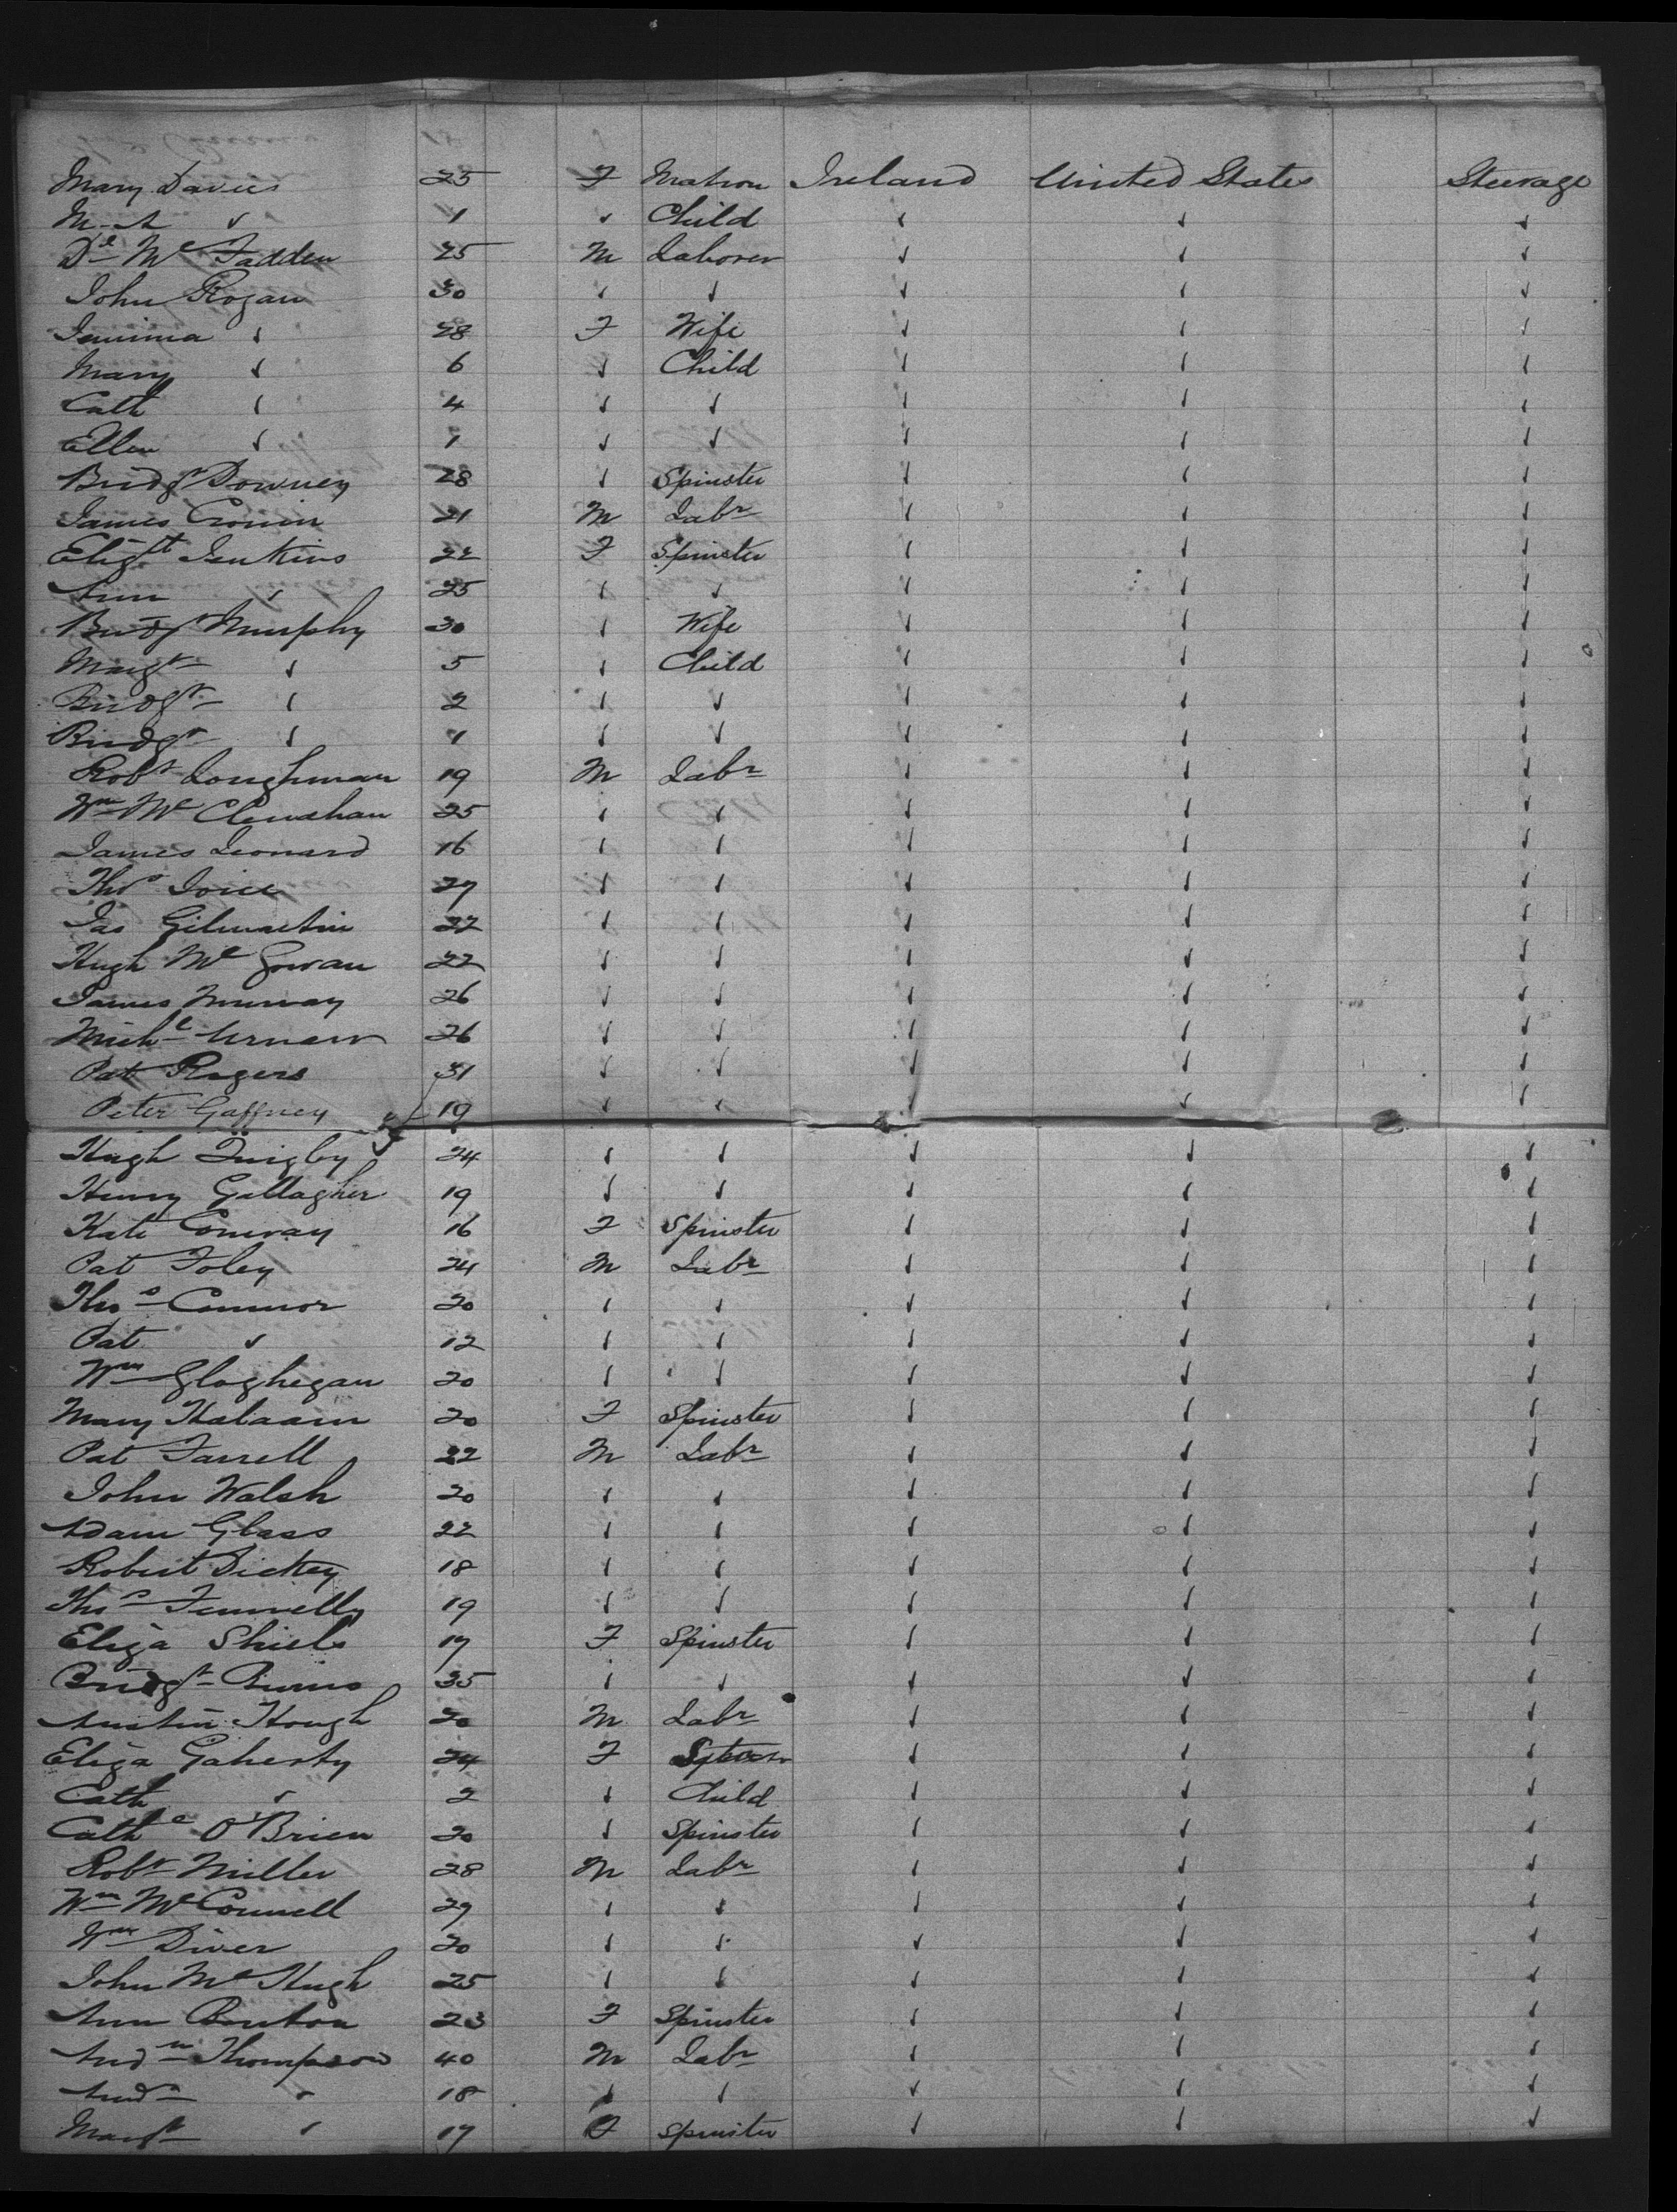 Mary Davies 25 F Matron Ireland United States Steerage
M. A ✓ 1 ✓ Child ✓ ✓ ✓
Dl Mc Fadden 25 M Laborer ✓ ✓ ✓
John Rogan 30 ✓ ✓ ✓ ✓ ✓
Jemima ✓ 28 F Wife ✓ ✓ ✓
Mary ✓ 6 ✓ Child ✓ ✓ ✓
Cath ✓ 4 ✓ ✓ ✓ ✓ ✓
Ellen ✓ 1 ✓ ✓ ✓ ✓ ✓
Bridgt Downey 28 ✓ Spinster ✓ ✓ ✓
James Cronin 21 M Labr ✓ ✓ ✓
Elizt Jenkins 22 F Spinster ✓ ✓ ✓
Ann ✓ 25 ✓ ✓ ✓ ✓ ✓
Bridgt Murphy 30 ✓ Wife ✓ ✓ ✓
Margt ✓ 5 ✓ Child ✓ ✓ ✓
Bridgt ✓ 2 ✓ ✓ ✓ ✓ ✓
Bridgt ✓ 1 ✓ ✓ ✓ ✓ ✓
Robt Loughman 19 M Labr ✓ ✓ ✓
Wm Mc Clenahan 25 ✓ ✓ ✓ ✓ ✓
James Leonard 16 ✓ ✓ ✓ ✓ ✓
Thos Joice 27 ✓ ✓ ✓ ✓ ✓
Jas Gilmartin 22 ✓ ✓ ✓ ✓ ✓
Hugh Mc Gowan 22 ✓ ✓ ✓ ✓ ✓
James Murray 26 ✓ ✓ ✓ ✓ ✓
Michl 26 ✓ ✓ ✓ ✓ ✓
Pat Rogers 31 ✓ ✓ ✓ ✓ ✓
Peter Gaffney 19 ✓ ✓ ✓ ✓ ✓
Hugh Quigley 24 ✓ ✓ ✓ ✓ ✓
Henry Gallagher 19 ✓ ✓ ✓ ✓ ✓
Kate Conway 16 F Spinster ✓ ✓ ✓
Pat Foley 24 M Labr ✓ ✓ ✓
Thos Connor 20 ✓ ✓ ✓ ✓ ✓
Pat ✓ 12 ✓ ✓ ✓ ✓ ✓
Wm Gloghegan 20 ✓ ✓ ✓ ✓ ✓
Mary 20 F Spinster ✓ ✓ ✓
Pat Farrell 22 M Labr ✓ ✓ ✓
John Walsh 20 ✓ ✓ ✓ ✓ ✓
Adam Glass 22 ✓ ✓ ✓ ✓ ✓
Robert Dickey 18 ✓ ✓ ✓ ✓ ✓
Thos Fennelly 19 ✓ ✓ ✓ ✓ ✓
Eliza Shiels 17 F Spinster ✓ ✓ ✓
Bridgt Burns 35 ✓ ✓ ✓ ✓ ✓
Austin Hough 20 M Labr ✓ ✓ ✓
Eliza Gaherty 24 F ✓ ✓ ✓
Cath ✓ 2 ✓ Child ✓ ✓ ✓
Cathe O'Brien 20 ✓ Spinster ✓ ✓ ✓
Robt Miller 28 M Labr ✓ ✓ ✓
Wm Mc Connell 29 ✓ ✓ ✓ ✓ ✓
Wm Diver 20 ✓ ✓ ✓ ✓ ✓
John Mc Hugh 25 ✓ ✓ ✓ ✓ ✓
Ann Benton 23 F Spinster ✓ ✓ ✓
Andw Thompson 40 M Labr ✓ ✓ ✓
Andw ✓ 18 ✓ ✓ ✓ ✓ ✓
Margt ✓ 17 F Spinster ✓ ✓ ✓